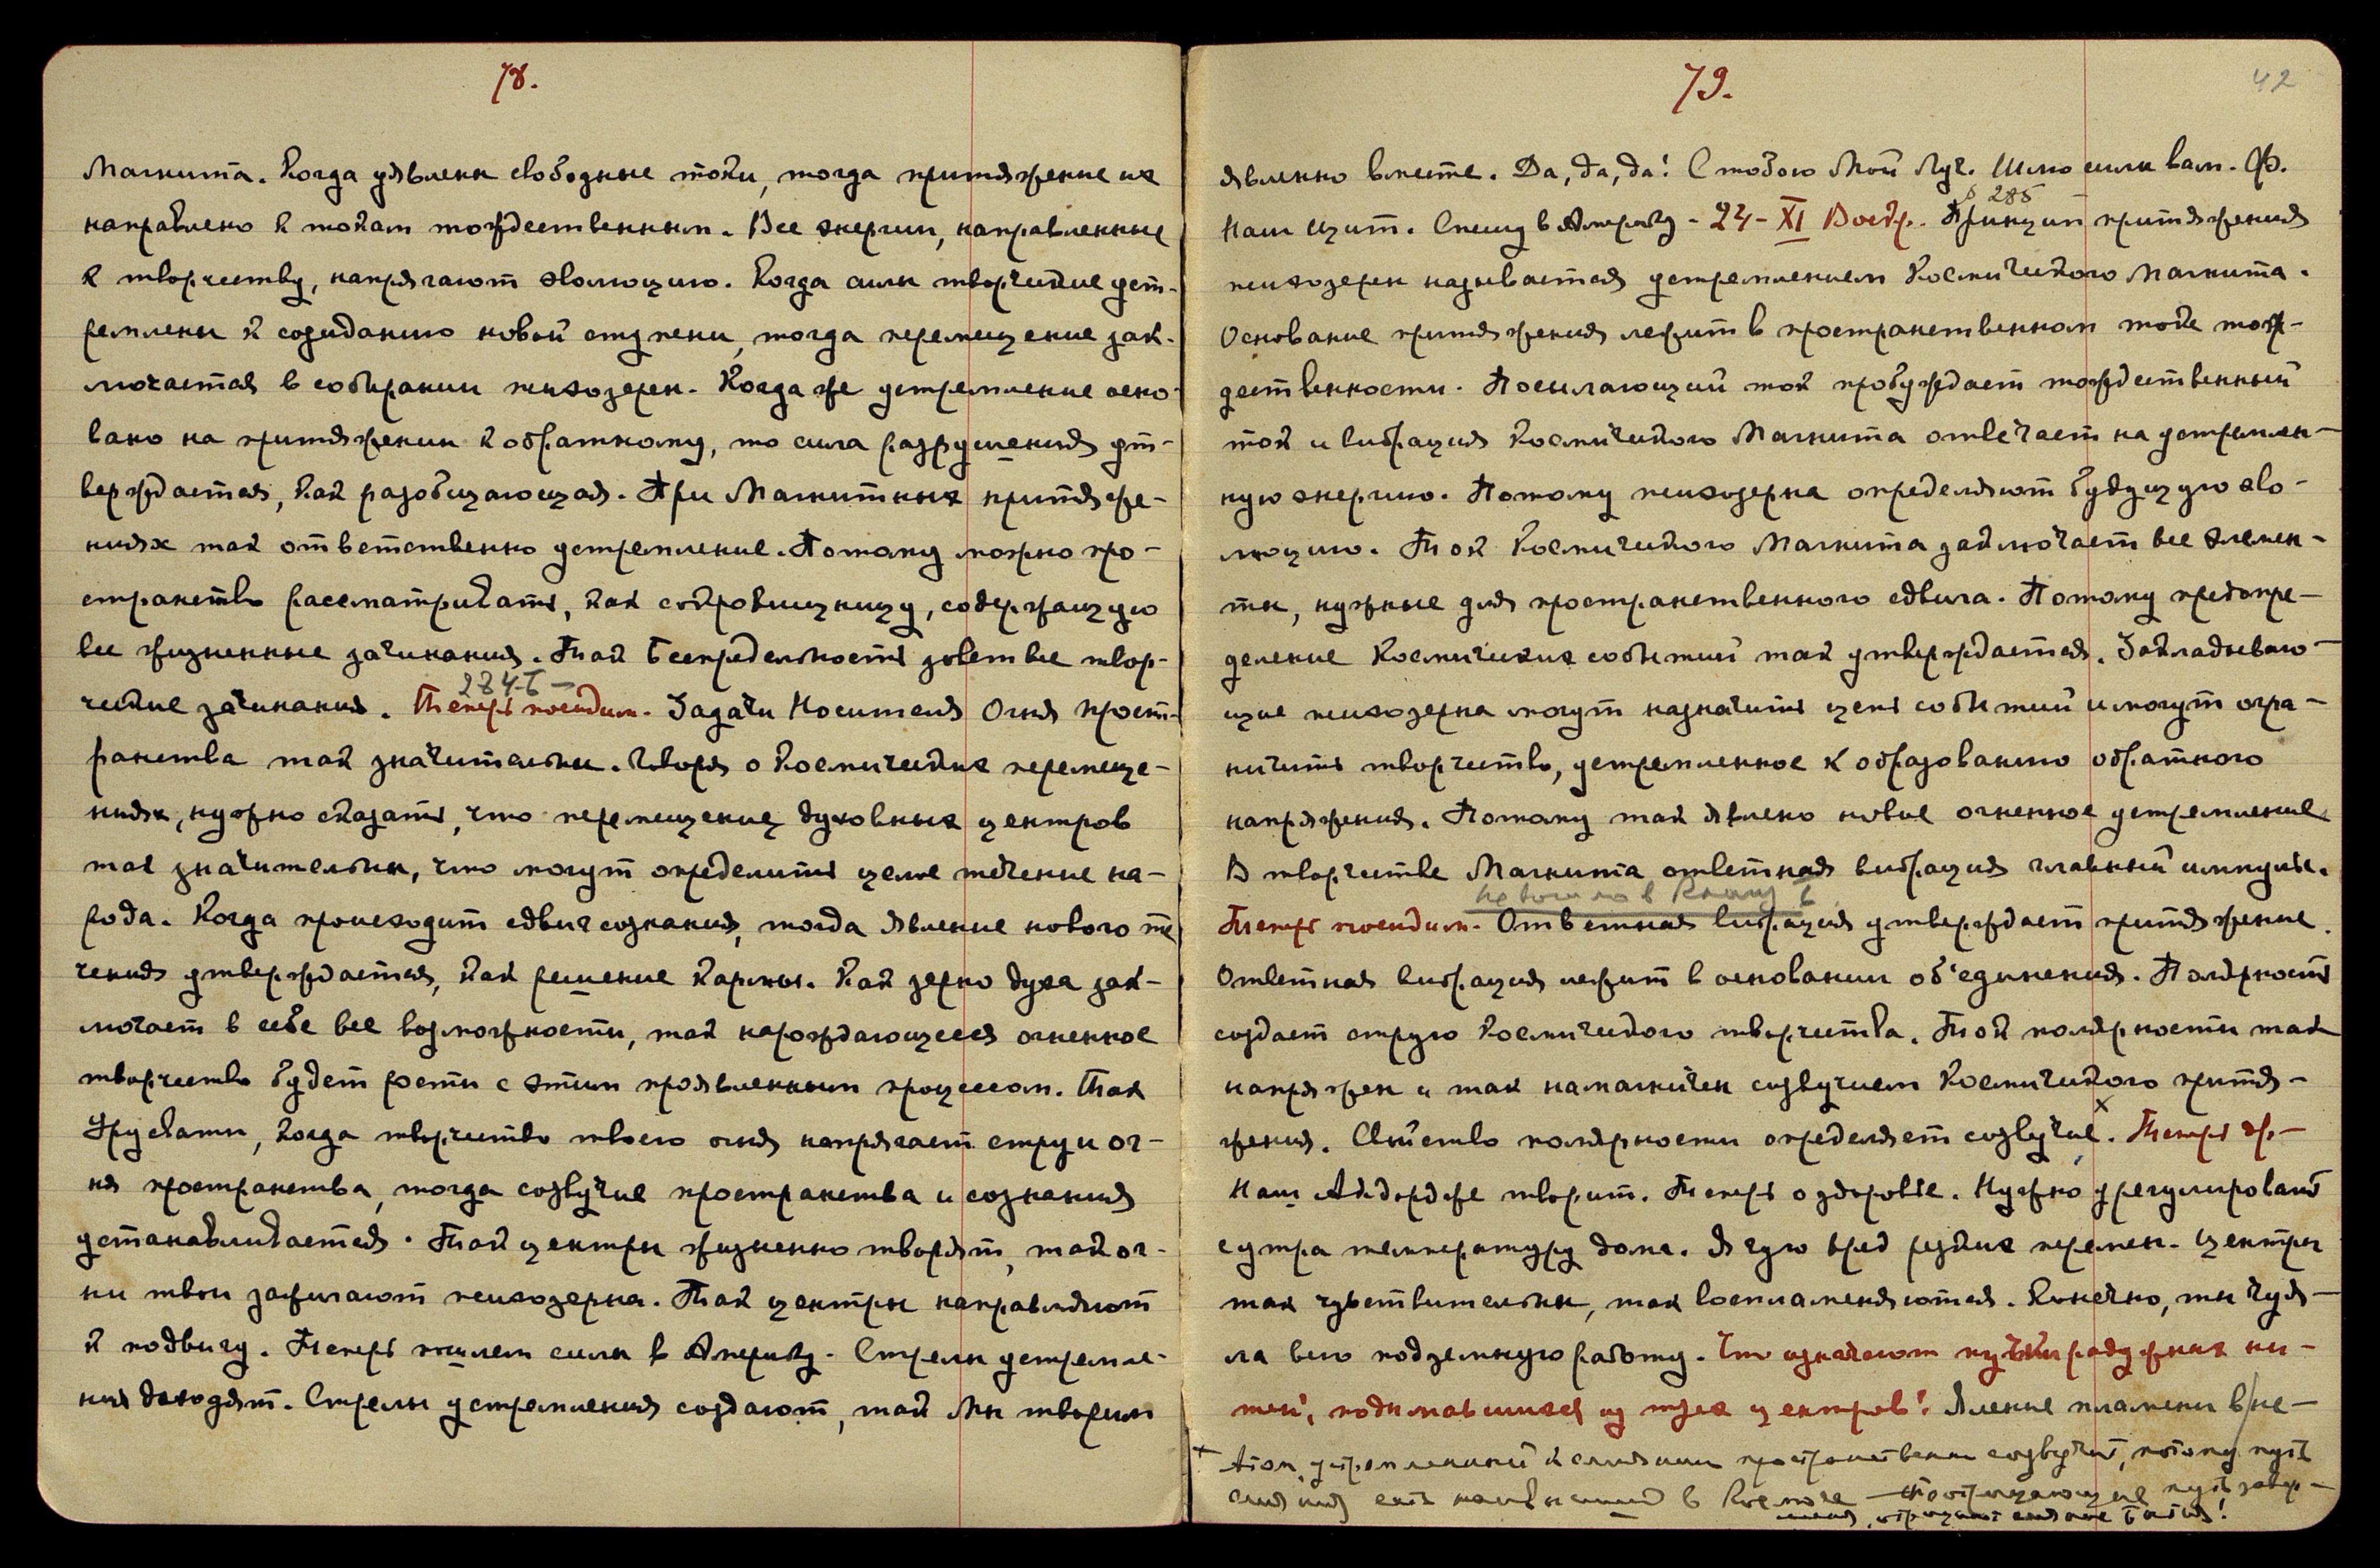 78.
Магнита. Когда уявлены свободные токи, тогда притяжение их
направлено к токам тождественным. Все энергии, направленные
к творчеству, напрягают эволюцию. Когда силы творческие уст-
ремлены к созиданию новой ступени, тогда перемещение зак-
лючается в собирании психозерен. Когда же устремление осно-
вано на притяжении к обратному, то сила разрушения ут-
верждается, как разобщающая. При Магнитных притяже-
ниях так ответственно устремление. Потому можно про-
странство рассматривать, как сокровищницу, содержащую
все жизненные зачинания. Так Беспредельность зовет все твор-
284-Б –
ческие зачинания. Теперь поендим. Задачи Носителя Огня прост-
ранства так значительны. Говоря о Космических перемеще-
ниях, нужно сказать, что перемещение духовных центров
так значительны, что могут определить целое течение на-
рода. Когда происходит сдвиг сознания, тогда явление нового те
чения утверждается, как решение Кармы. Как зерно духа зак-
лючает в себе все возможности, так нарождающееся огненное
творчество будет расти с этим проявленным процессом. Так
Урусвати, когда творчество твоего огня напрягает струи ог-
ня пространства, тогда созвучие пространства и сознания
устанавливается. Так центры жизненно творят, так ог-
ни твои зажигают психозерна. Так центры направляют
к подвигу. Теперь пошлем силы в Америку. Стрелы устремле-
ния доходят. Стрелы устремления создают, так Мы творим
79.
42
явленно вместе. Да, да, да! С тобою Мой Луч. Шлю силы вам. Ф.
Б 285 –
Наш щит. Спешу в Америку - 24 - XI Воскр. Принцип притяжения
психозерен называется устремлением Космического Магнита.
Основание притяжения лежит в пространственном токе тож-
дественности. Посылающий ток пробуждает тождественный
ток и вибрация Космического Магнита отвечает на устремлен-
ную энергию. Потому психозерна определяют будущую эво-
люцию. Ток Космического Магнита заключает все элемен-
ты, нужные для пространственного сдвига. Потому предопре-
деление Космических событий так утверждается. Закладываю-
щие психозерна могут назначить цепь событий и могут огра-
ничить творчество, устремленное к образованию обратного
напряжения. Потому так явлено новое огненное устремление
В творчестве Магнита ответная вибрация главный импульс.
не вошло в Книгу Б
Теперь поендим. Ответная вибрация утверждает притяжение.
Ответная вибрация лежит в основании об'единения. Полярность
создает струю Космического творчества. Ток полярности так
напряжен и так намагничен созвучием Космического притя-
жения. Свойство полярности определяет созвучие. х Теперь др. –
Наш Аллордже творит. Теперь о здоровье. Нужно урегулировать
с утра температуру дома. Я чую вред резких перемен. Центры
так чувствительны, так воспламеняются. Конечно, ты чуя-
ла всю подземную работу. Что означают пучки радужных ни-
тей, поднимавшихся из трех центров? Явление пламени в не-
х Атом, устремленный к слиянию пространственно созвучит, потому путь
слияния есть наивысший в Космосе – путь завер-